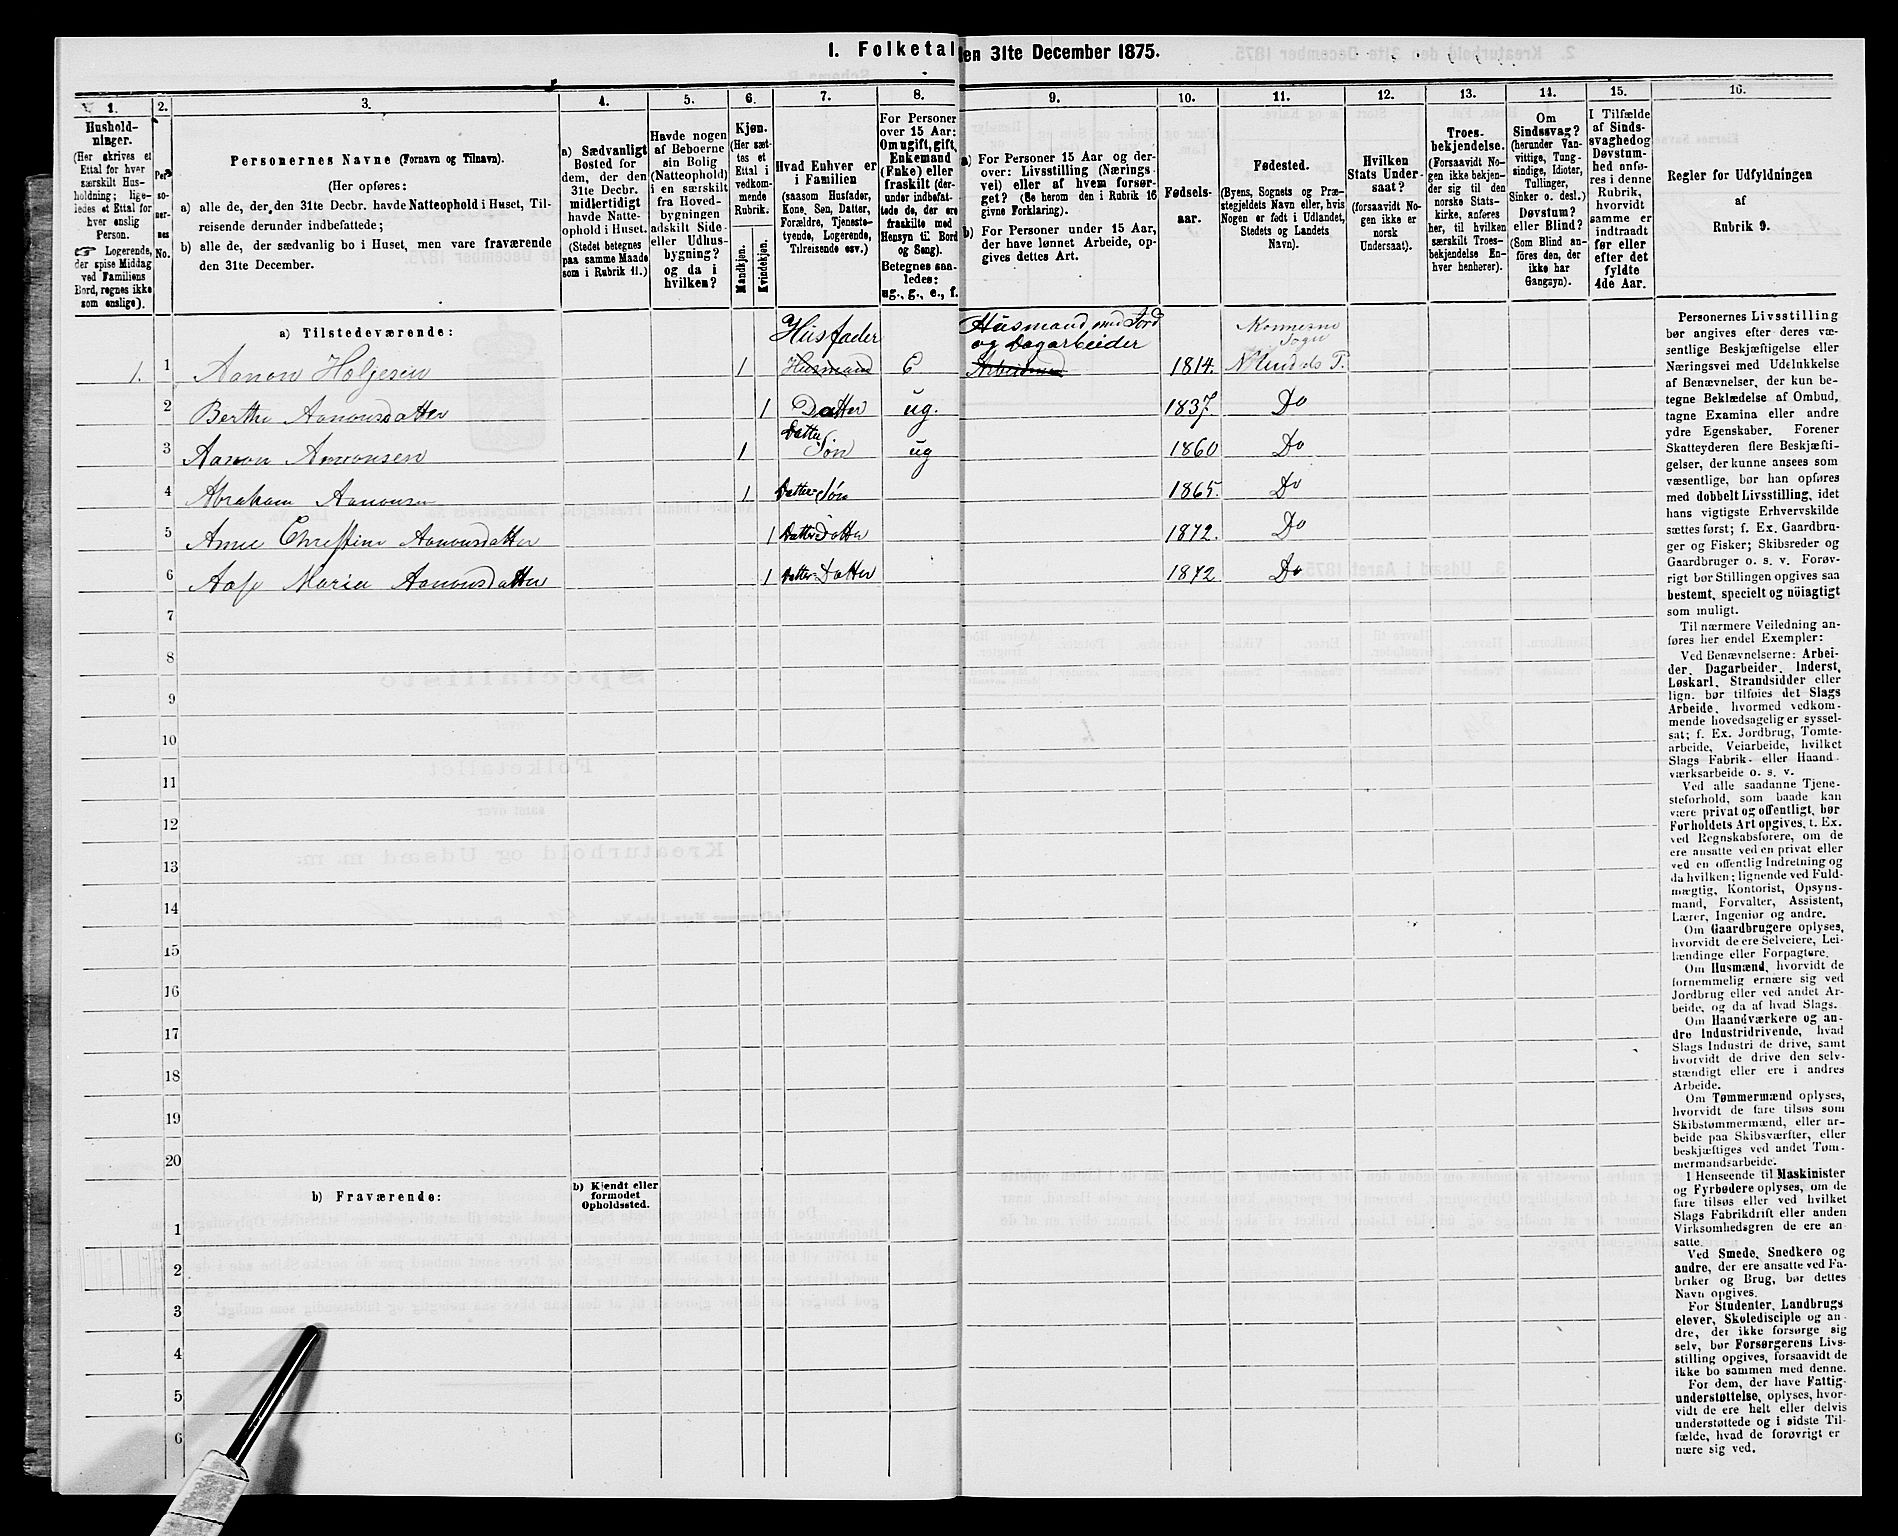 I. Folketal den 31te December 1875.
1. 2. 3. 4. 5. 6. 7. 8. 9. 10. 11. 12. 13. 14. 15. 16.
Hushold-
ninger.
(Her skrives et
Ettal for hver
særskilt Hus-
holdning; lige-
ledes et Ettal for
hver enslig
Person.
☞ Logerende,
der spise Middag
ved Familiens
Bord, regnes ikke
som enslige).
Per-
so-
ner-
nes
No.
Personernes Navne (Fornavn og Tilnavn).
(Her opføres:
a) alle de, der den 31te Decbr. havde Natteophold i Huset, Til-
reisende derunder indbefattede;
b) alle de, der sædvanlig bo i Huset, men vare fraværende
den 31te December.
a) Sædvanligt
Bosted for
dem, der den
31te Decbr.
midlertidigt
havde Natte-
ophold i Huset.
(Stedet betegnes
paa samme Maade
som i Rubrik 11.)
Havde nogen
af Beboerne
sin Bolig
(Natteophold)
i en særskilt
fra Hoved-
bygningen
adskilt Side-
eller Udhus-
bygning?
og da i
hvilken?
Kjøn.
(Her sæt-
tes et
Ettal i
vedkom-
mende
Rubrik.
Mandkjøn.
Kvindekjøn.
Hvad Enhver er
i Familien
(saasom Husfader,
Kone, Søn, Datter,
Forældre, Tjeneste-
tyende, Logerende,
Tilreisende osv.)
For Personer
over 15 Aar:
Om ugift, gift,
Enkemand
(Enke) eller
fraskilt (der-
under indbefat-
tede de, der ere
fraskilte med
Hensyn til Bord
og Seng).
Betegnes saa-
ledes:
ug., g., e., f.
a) For Personer 15 Aar og der-
over: Livsstilling (Nærings-
vei) eller af hvem forsør-
get? (Se herom den i Rubrik 16
givne Forklaring).
b) For Personer under 15 Aar,
der have lønnet Arbeide, op-
gives dettes Art.
Fødsels-
aar.
Fødested.
(Byens, Sognets og Præ-
stegjeldets Navn eller, hvis
Nogen er født i Udlandet,
Stedets og Landets
Navn).
Hvilken
Stats Under-
saat?
(forsaavidt No-
gen ikke er
norsk
Undersaat).
Troes-
bekjendelse.
(Forsaavidt No-
gen ikke bekjen-
der sig til den
norske Stats-
kirke, anføres
her, til hvilken
særskilt Troes-
bekjendelse En-
hver henhører).
Om
Sindssvag?
(herunder Van-
vittige, Tung-
sindige, Idioter,
Tullinger,
Sinker o. desl.)
Døvstum?
eller Blind?
(Som Blind an-
føres den, der
ikke har
Gangsyn).
I Tilfælde
af Sinds-
svaghed og
Døvstum-
hed anfø-
res i denne
Rubrik,
hvorvidt
samme er
indtraadt
før eller
efter det
fyldte
4de Aar.
Regler for Udfyldningen
af
Rubrik 9.
a) Tilstedeværende:
Husfader Husmand med Jord
og Dagarbeider Sogn
1. 1 Aanon Holjesen 1 Husmand E Arbeidsmand 1814. N. Undals P.
2 Berthe Aanonsdatter 1 Datter ug. 1837. Do
3 Aanon Aanonsen 1 Datter Søn ug 1860 Do
4 Abraham Aanonsen 1 Datter-Søn 1865. Do
5 Anne Christine Aanonsdatter 1 Datter-Datter 1872. Do
6 Aase Maria Aanonsdatter 1 Datter-Datter 1872 Do
7
8
9
10
11
12
13
14
15
16
17
18
19
20
b) Fraværende:
b) Kjendt eller
formodet
Opholdssted.
1
2
3
4
5
6
Personernes Livsstilling
bør angives efter deres væ-
sentlige Beskjæftigelse eller
Næringsvei med Udelukkelse
af Benævnelser, der kun be-
tegne Beklædelse af Ombud,
tagne Examina eller andre
ydre Egenskaber. Forener
Skatteyderen flere Beskjæfti-
gelser, der kunne ansees som
væsentlige, bør han opføres
med dobbelt Livsstilling, idet
hans vigtigste Erhvervskilde
sættes først; f. Ex. Gaardbru-
ger og Fisker; Skibsreder og
Gaardbruger o. s. v. Forøv-
rigt bør Stillingen opgives saa
bestemt, specielt og nøiagtigt
som muligt.
Til nærmere Veiledning an-
føres her endel Exempler:
Ved Benævnelserne: Arbei-
der, Dagarbeider, Inderst,
Løskarl, Strandsidder eller
lign. bør tilføies det Slags
Arbeide, hvormed vedkom-
mende hovedsagelig er syssel-
sat; f. Ex. Jordbrug, Tomte-
arbeide, Veiarbeide, hvilket
Slags Fabrik- eller Haand-
værksarbeide o. s. v.
Ved alle saadanne Tjene-
steforhold, som baade kan
være privat og offentligt, bør
Forholdets Art opgives, t. Ex.
ved Regnskabsførere, om de
ere ansatte ved en privat eller
ved en offentlig Indretning og
da hvilken; lignende ved Fuld-
mægtig, Kontorist, Opsyns-
mand, Forvalter, Assistent,
Lærer, Ingeniør og andre.
Om Gaardbrugere oplyses,
hvorvidt de ere Selveiere, Lei-
lændinge eller Forpagtere.
Om Husmænd, hvorvidt de
fornemmelig ernære sig ved
Jordbrug eller ved andet Ar-
beide, og da af hvad Slags.
Om Haandværkere og an-
dre Industridrivende, hvad
Slags Industri de drive, samt
hvorvidt de drive den selv-
stændigt eller ere i andres
Arbeide.
Om Tømmermænd oplyses,
hvorvidt de fare tilsøs som
Skibstømmermænd, eller ar-
beide paa Skibsværfter, eller
beskjæftiges ved andet Tøm-
mermandsarbeide.
I Henseende til Maskinister
og Fyrbødere oplyses, om de
fare tilsøs eller ved hvilket
Slags Fabrikdrift eller anden
Virksomhedsgren de ere an-
satte.
Ved Smede, Snedkere og
andre, der ere ansatte ved Fa-
briker og Brug, bør dettes
Navn opgives.
For Studenter, Landbrugs-
elever, Skoledisciple og an-
dre, der ikke forsørge sig
selv, bør Forsørgerens Livs-
stilling opgives, forsaavidt de
ikke bo sammen med denne.
For dem, der have Fattig-
understøttelse, oplyses, hvor-
vidt de ere helt eller delvis
understøttede og i sidste Til-
fælde, hvad de forøvrigt er
nære sig ved.